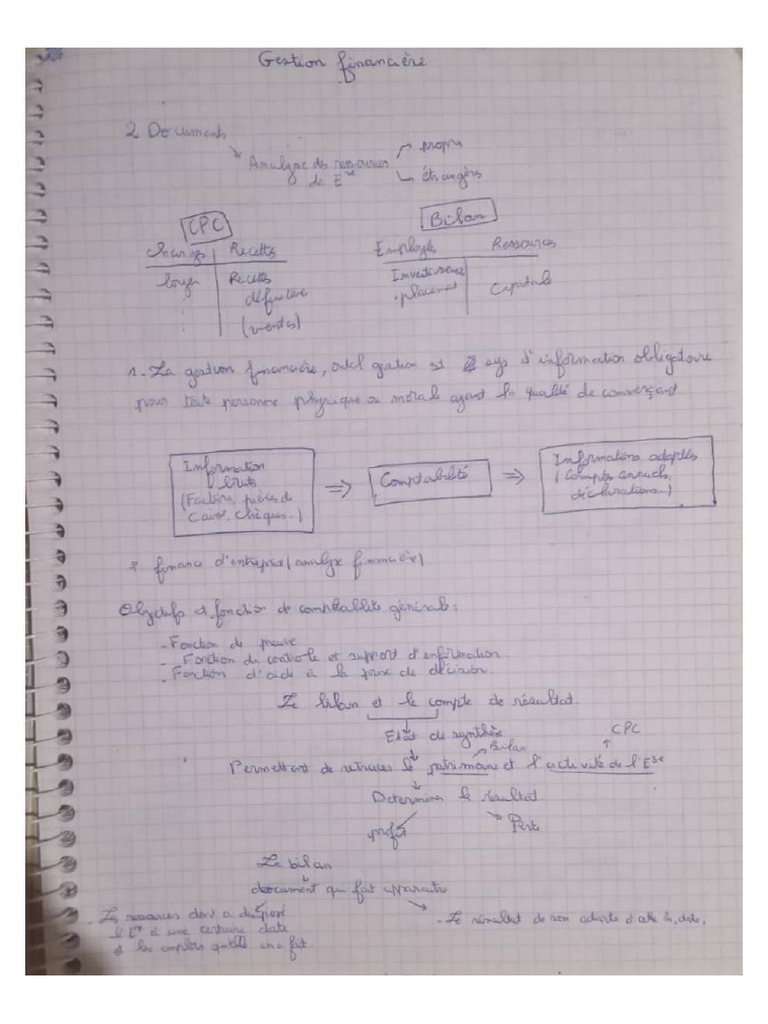 Gestion financière
2 Documents
Analyse des ressources propres
de E^se étrangers
CPC Bilan
Charges Recettes Employés Ressources
loyer Recettes Investissement Capitals
définitives placement
(ventes)
1. La gestion financière, outil gestion est sys d'information obligatoire
pour toute personne physique ou morale ayant la qualité de commerçant
Information
brute
(Factures, pièces de
Caisse, chèques...)
⇒
Comptabilité
⇒
Informations adaptés
(Comptes annuels,
déclarations...)
finance d'entreprise (analyse financière)
Objectifs et fonction de comptabilité générale :
- Fonction de preuve
- Fonction de controle et support d'information
- Fonction d'aide à la prise de décision.
Le bilan et le compte de résultat.
Etat de synthèse
Bilan CPC
Permettent de retracer le patrimoine et l'activité de l'E^se
Determiner le résultat
profit Perte
Le bilan
document qui fait apparaitre
- Les ressources dont a disposé
l'E^se à une certaine date
et les emplois qu'elle en a fait
- Le résultat de son activité à cette date,